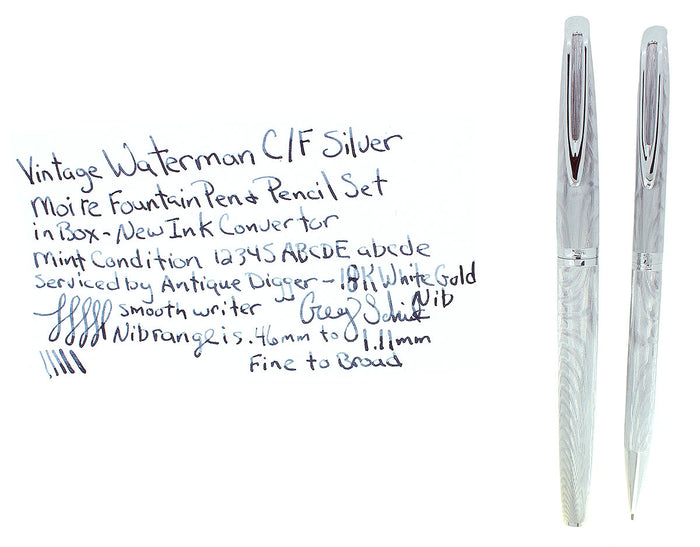 Vintage Waterman C/F Silver
Moire Fountain Pen & Pencil Set
in Box - New Ink Convertor
Mint Condition 12345 ABCDE abcde
Serviced by Antique Digger - 18K White Gold
Nib
smooth writer Greg
Nib range is .46mm to 1.11mm
Fine to Broad